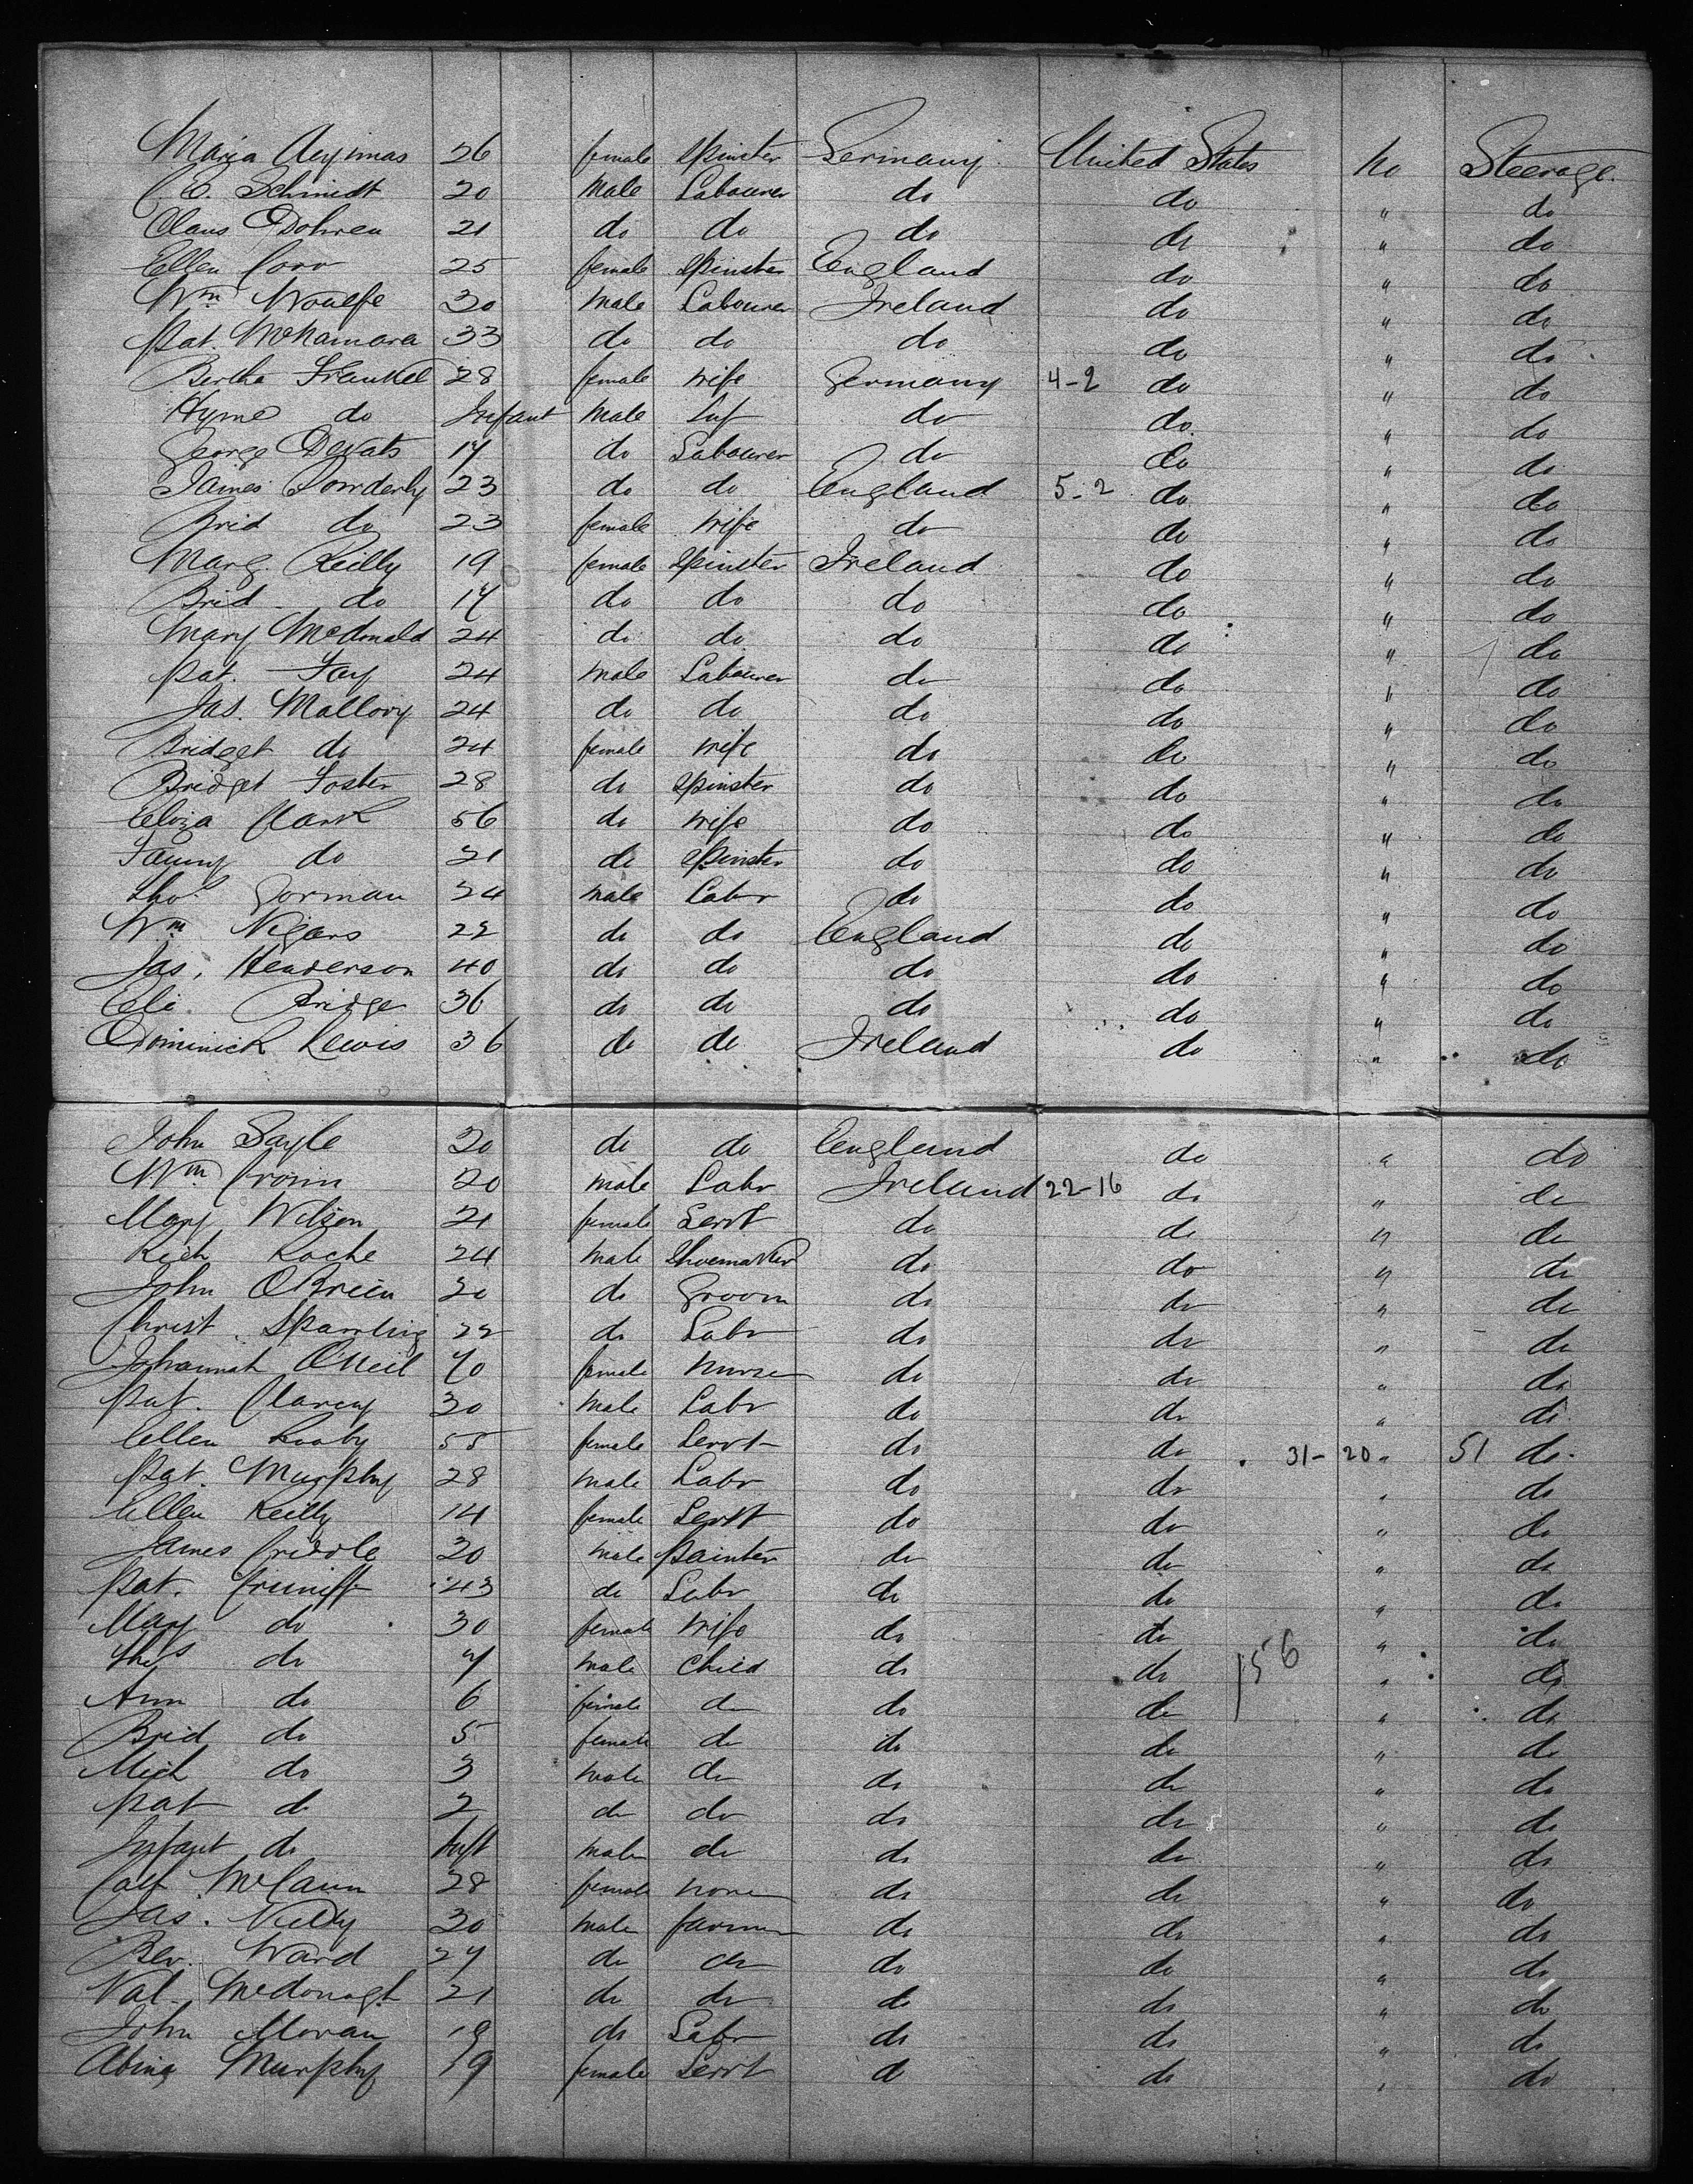 Maria 26 female Spinster Germany United States no Steerage
C. Schmidt 20 male Labourer do do " do
Claus Dohren 21 do do do do " do
Ellen Corr 25 female Spinster England do " do
Wm Woulfe 30 male Labourer Ireland do " do
Pat. McNamara 33 do do do do " do
Bertha Frankel 28 female wife Germany 4-2 do " do
Hyme do Infant male Inf do do " do
George 17 do Labourer do do " do
James Powderly 23 do do England 5-2 do " do
Brid do 23 female wife do do " do
Marg. Reilly 19 female Spinster Ireland do " do
Brid do 17 do do do do " do
Mary McDonald 24 do do do do " do
Pat. Fay 24 male Labourer do do " do
Jas. Mallory 24 do do do do " do
Bridget do 24 female wife do do " do
Bridget Foster 28 do Spinster do do " do
Eliza Clark 56 do wife do do " do
Fanny do 21 do Spinster do do " do
Thos Gorman 24 male Labr do do " do
Wm Nigars 22 do do England do " do
Jas. Henderson 40 do do do do " do
Eli Bridge 36 do do do do " do
Dominick Lewis 36 do do Ireland do " do
John Sayle 20 do do England do " do
Wm Cronin 20 male Labr Ireland 22-16 do " do
Mary Wilson 21 female Servt do do " do
Rich Roche 24 male Shoemaker do do " do
John OBrien 20 do Groom do do " do
Christ. Sparling 22 do Labr do do " do
Johannah O'Neil 70 female nurse do do " do
Pat. Clancy 30 male Labr do do " do
Ellen Looby 55 female Servt do do 31-20 " 51 do
Pat. Murphy 28 male Labr do do " do
Ellen Reilly 14 female Servt do do " do
James Criddle 20 male Painter do do " do
Pat. Cunniff 43 do Labr do do " do
Mary do 30 female wife do do " do
Thos do 7 male Child do do 156 " do
Ann do 6 female do do do " do
Brid do 5 female do do do " do
Mich do 3 male do do do " do
Pat do 2 do do do do " do
Infant do Inft male do do do " do
Cath McCann 28 female none do do " do
Jas. Kelly 30 male farmer do do " do
Ber. Ward 27 do do do do " do
Nat. McDonagh 21 do do do do " do
John Moran 19 do Labr do do " do
Abina Murphy 19 female Servt do do " do